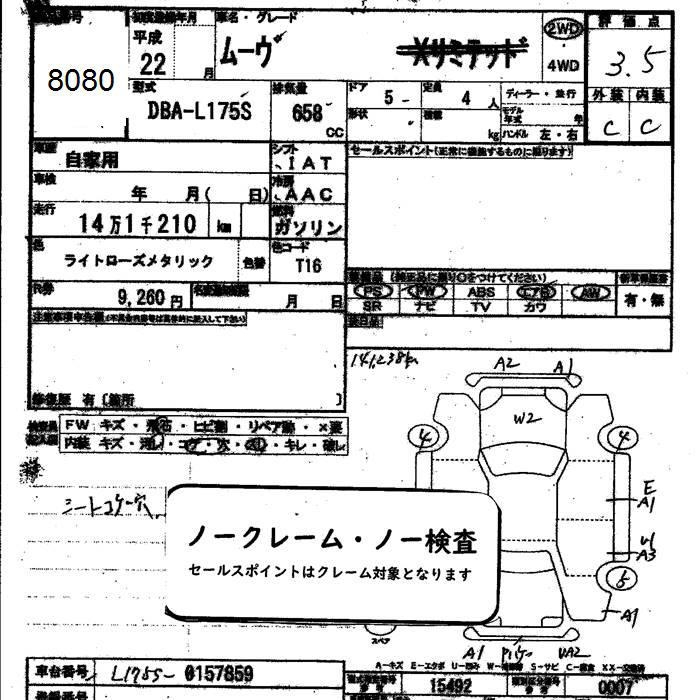 車名・グレード
評価点
平成
22
月
ムーヴ
Xリミテッド
2WD
4WD
3.5
8080
型式
排気量
ドア
5
定員
4
人
ディーラー・並行
外装 内装
DBA-L175S
658
CC
形状
積載
kg
ハンドル 左・右
C C
車歴
自家用
シフト
IAT
車検
年 月( 日)
冷房
AAC
走行
14万1千210 km
燃料
ガソリン
色
ライトローズメタリック
色替
色コード
T16
R券
9,260円
月 日
PS PW ABS エアB AW
SR ナビ TV カワ
有・無
141,238km
修復歴 有[箇所 ]
FW キズ・飛石・ヒビ割・リペア跡・X要
内装 キズ・汚れ・コゲ・穴・ ・キレ・破レ
A2 A1
W2
4 4
E
A1
A3
5
A1
シートコゲ穴
ノークレーム・ノー検査
セールスポイントはクレーム対象となります
スペア
A1 UA2
A-キズ E-エクボ
車台番号
L175S-0157859
15492
0007